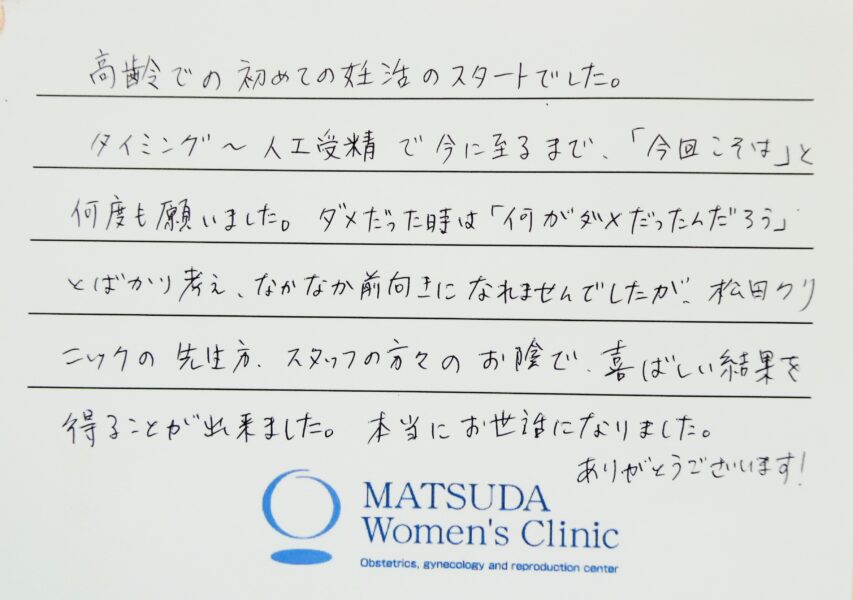 高齢での初めての妊活のスタートでした。
タイミング～人工受精で今に至るまで、「今回こそは」と
何度も願いました。ダメだった時は「何がダメだったんだろう」
とばかり考え、なかなか前向きになれませんでしたが、松田クリ
ニックの先生方、スタッフの方々のお陰で、喜ばしい結果を
得ることが出来ました。本当にお世話になりました。
ありがとうございます!
MATSUDA
Women's Clinic
Obstetrics, gynecology and reproduction center